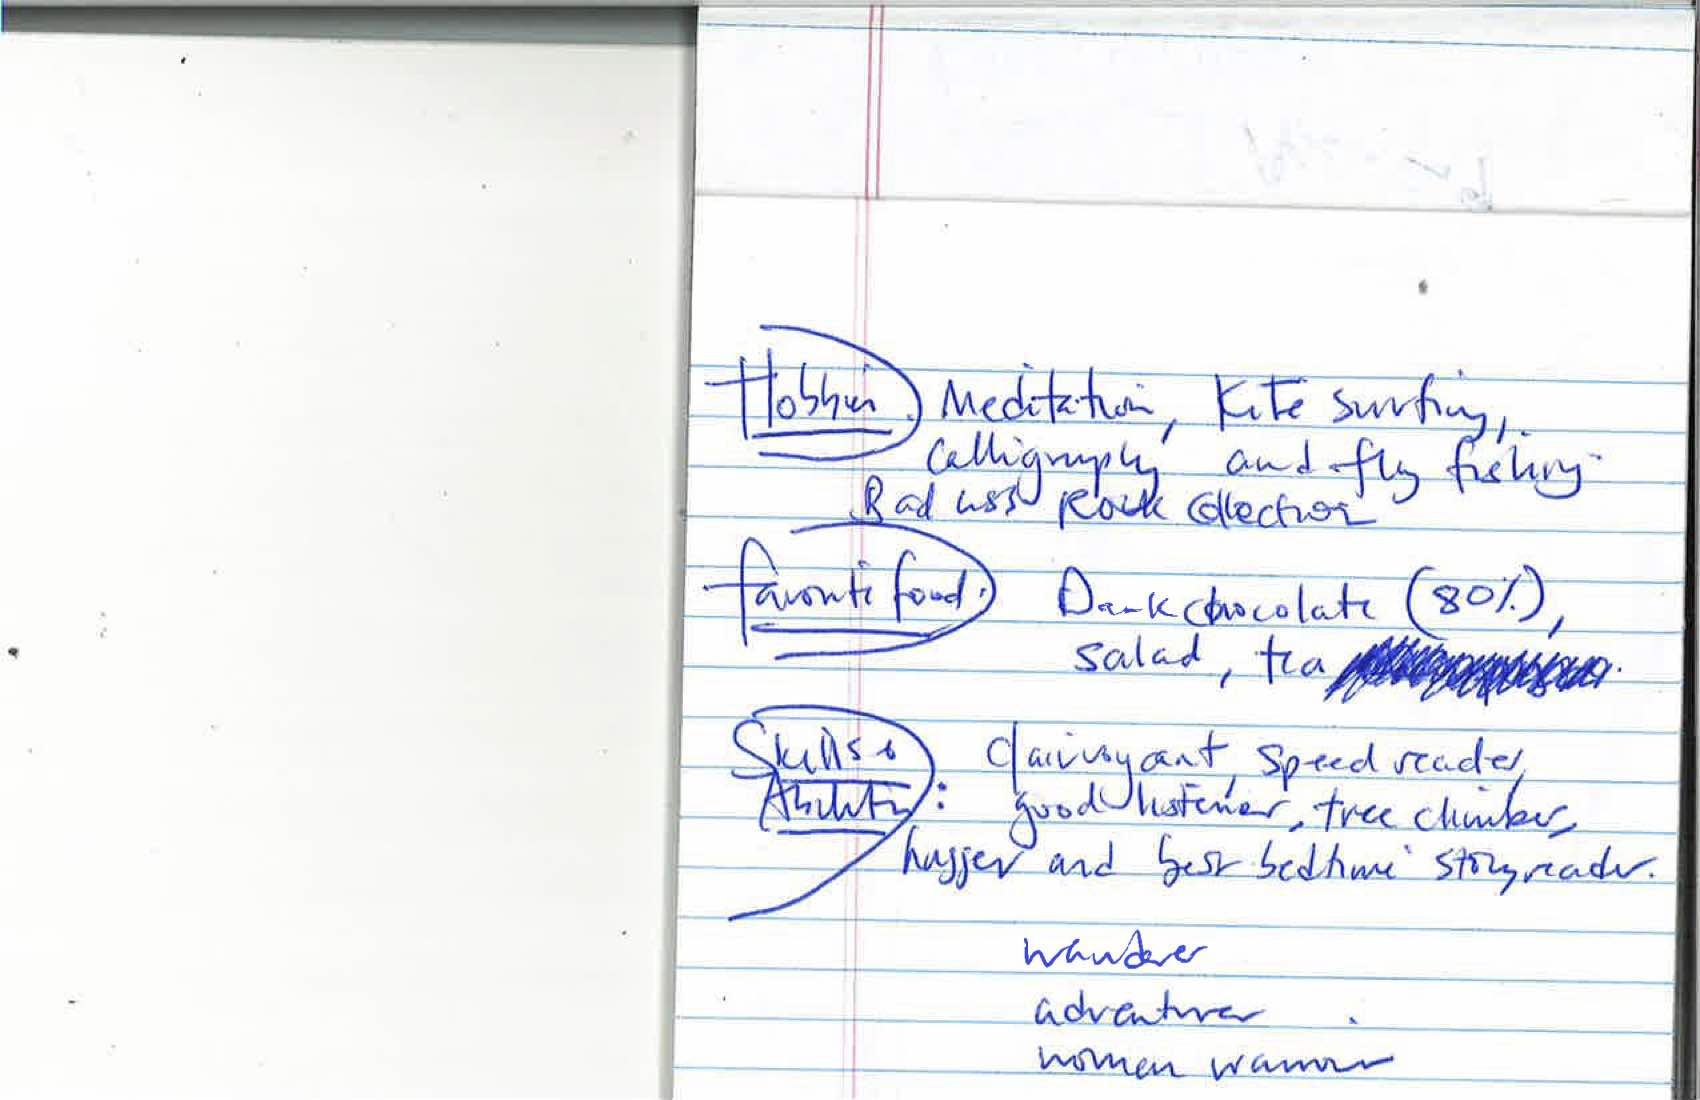 Hobbies: Meditation, Kite surfing,
Calligraphy and fly fishing.
Bad ass Rock collection
favorite food: Dark chocolate (80%),
salad, tea
Skills &
Ability: Clairvoyant, speed reader,
good listener, tree climber,
hugger and best bedtime story reader.
wanderer
adventurer
women warrior